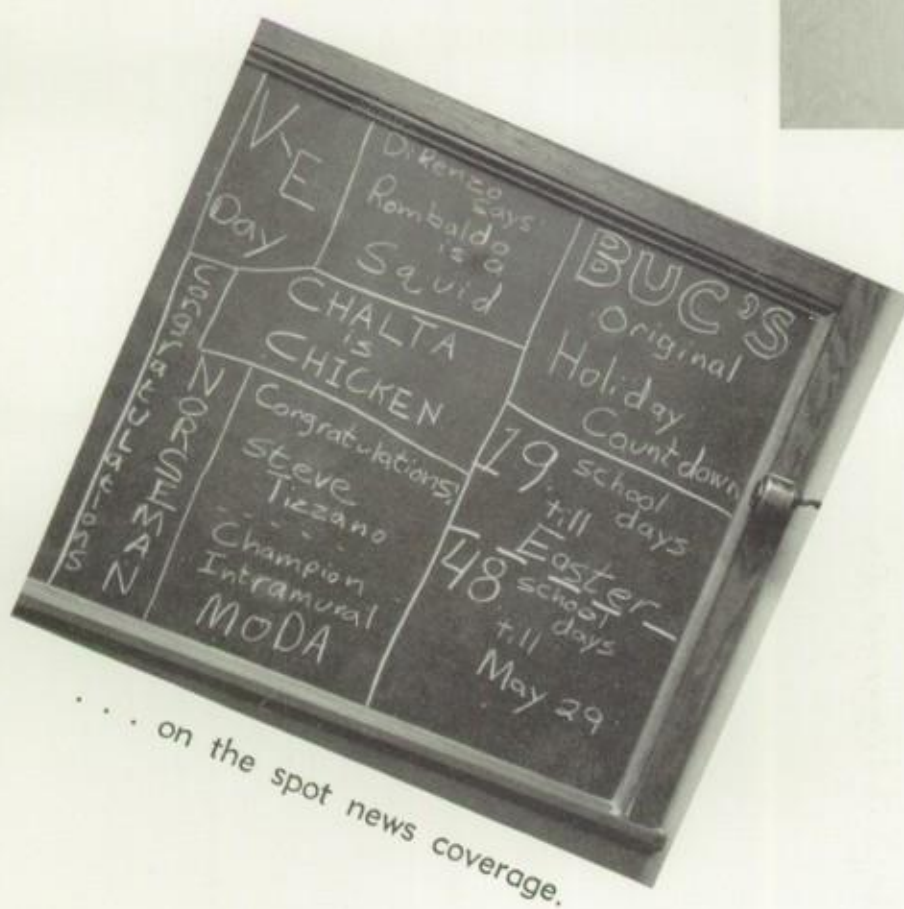 V-E
Day
DiRenzo
says:
Rombaldo
is a
Squid
BUC'S
Original
Holiday
Countdown
CHALTA
is
CHICKEN
Congratulations
NORSEMAN
Congratulations!
Steve
Tizzano
Champion
Intramural
MODA
19 school
days
till
Easter
48 school
days
till
May 29
. . . on the spot news coverage.